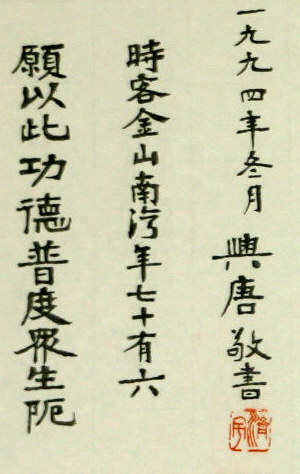 一九九四年冬月興唐敬書
時客金山南湾年七十有六
願以此功德普度眾生阨